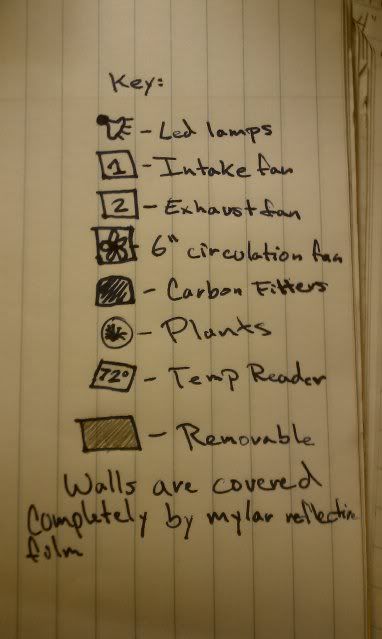 Key:
- Led lamps
1 - Intake fan
2 - Exhaust fan
- 6" circulation fan
- Carbon Filters
- Plants
72° - Temp Reader
- Removable
Walls are covered
Completely by mylar reflectin
film